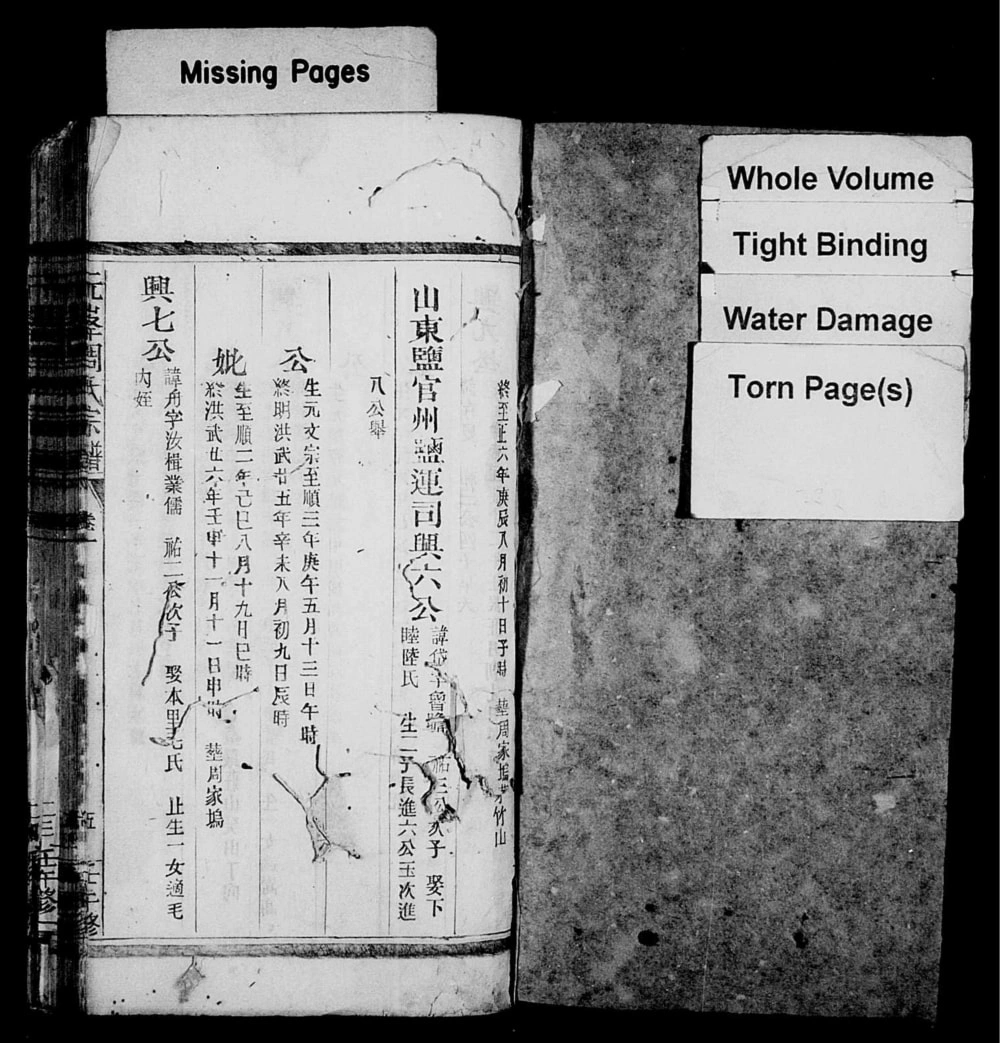 Missing Pages
Whole Volume
Tight Binding
Water Damage
Torn Page(s)
終至正六年庚辰八月初十日子時 塟周家塢 竹山
山東鹽官州鹽運司興六公
諱岱字曾 祐三公次子 娶下
睦陸氏 生二子長進六公玉次進
八公舉
公
生元文宗至順三年庚午五月十三日午時
終明洪武廿五年辛未八月初九日辰時
妣
生至順二年己巳八月十九日巳時
終洪武廿六年壬申十一月十一日申時 塟周家塢
興七公
諱舟字汝楫業儒 祐二公次子 娶本里毛氏 止生一女適毛
內姪
周氏宗譜
卷一
五
壬午修